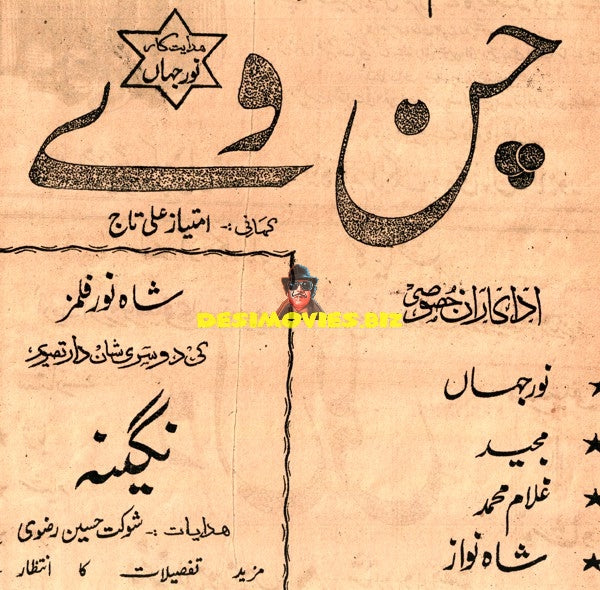 ہدایت کار
نور جہاں
چن وے
کہانی :- امتیاز علی تاج
اداکاران خصوصی
نور جہاں
مجید
غلام محمد
شاہ نواز
شاہ نور فلمز
کی دوسری شان دار تصویر
نگینہ
ہدایات :- شوکت حسین رضوی
مزید تفصیلات کا انتظار
DESIMOVIES.BIZ